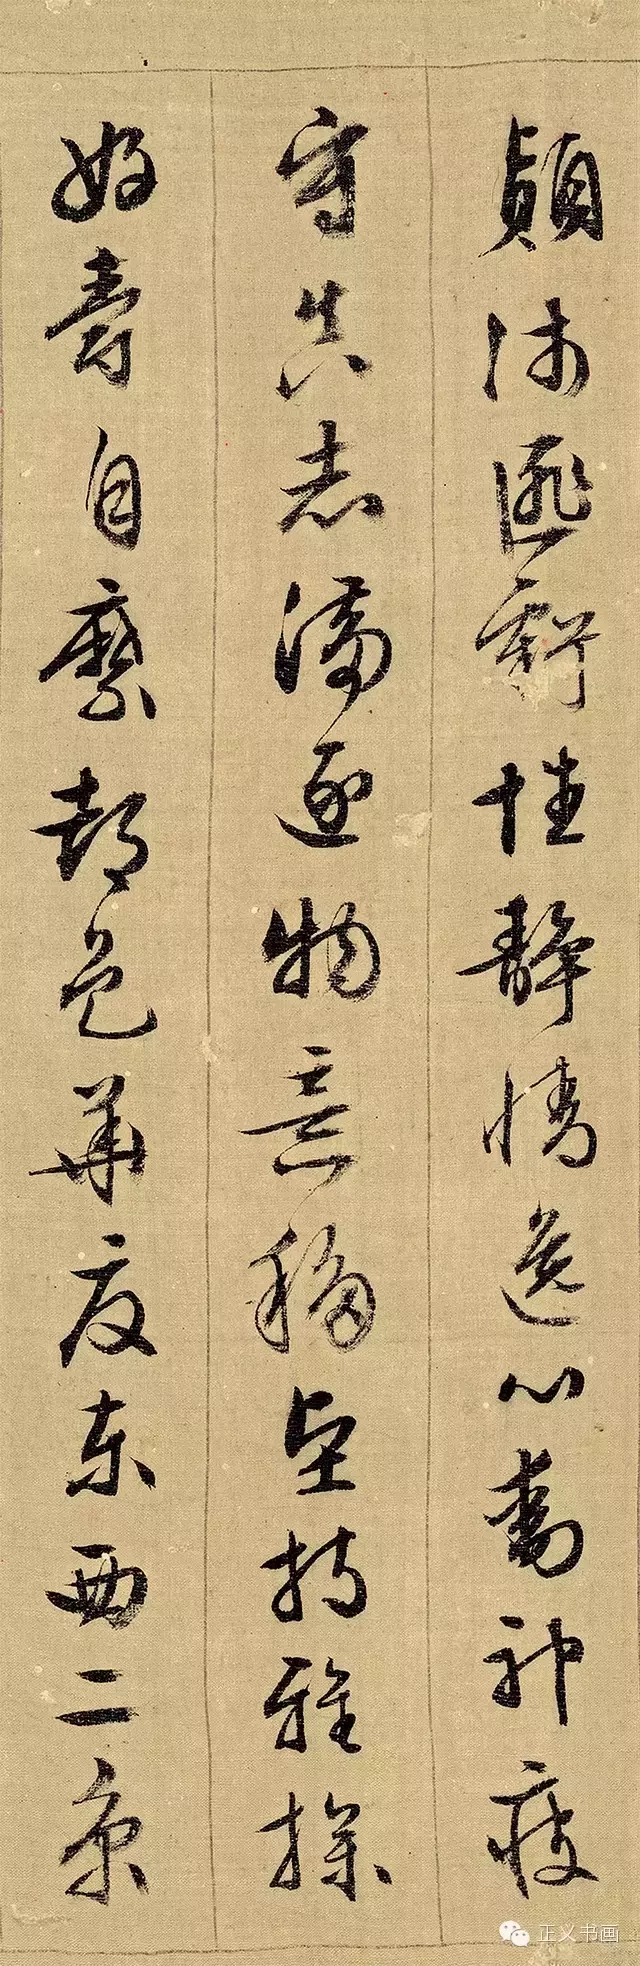 顛沛匪虧性静情逸心動神疲
守真志滿逐物意移堅持雅操
好爵自縻都邑華夏東西二京
正义书画